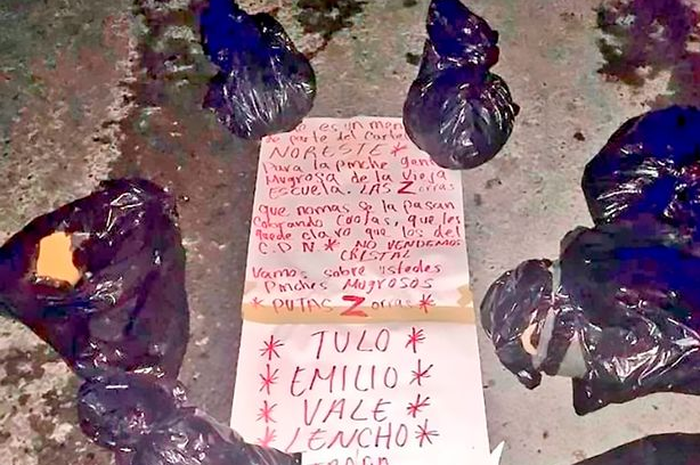 es un men
de parte del Cartel
NORESTE *
Para la pinche gente
Mugrosa de la Vieja
Escuela. LAS Zorras
que nomas se la pasan
Cobrando Cootas, que les
quede claro que los del
C.D.N.* NO VENDEMOS
CRISTAL
Vamos sobre ustedes
Pinches Mugrosos
* PUTAS Zorras *
* TULO *
* EMILIO *
* VALE *
* LENCHO *